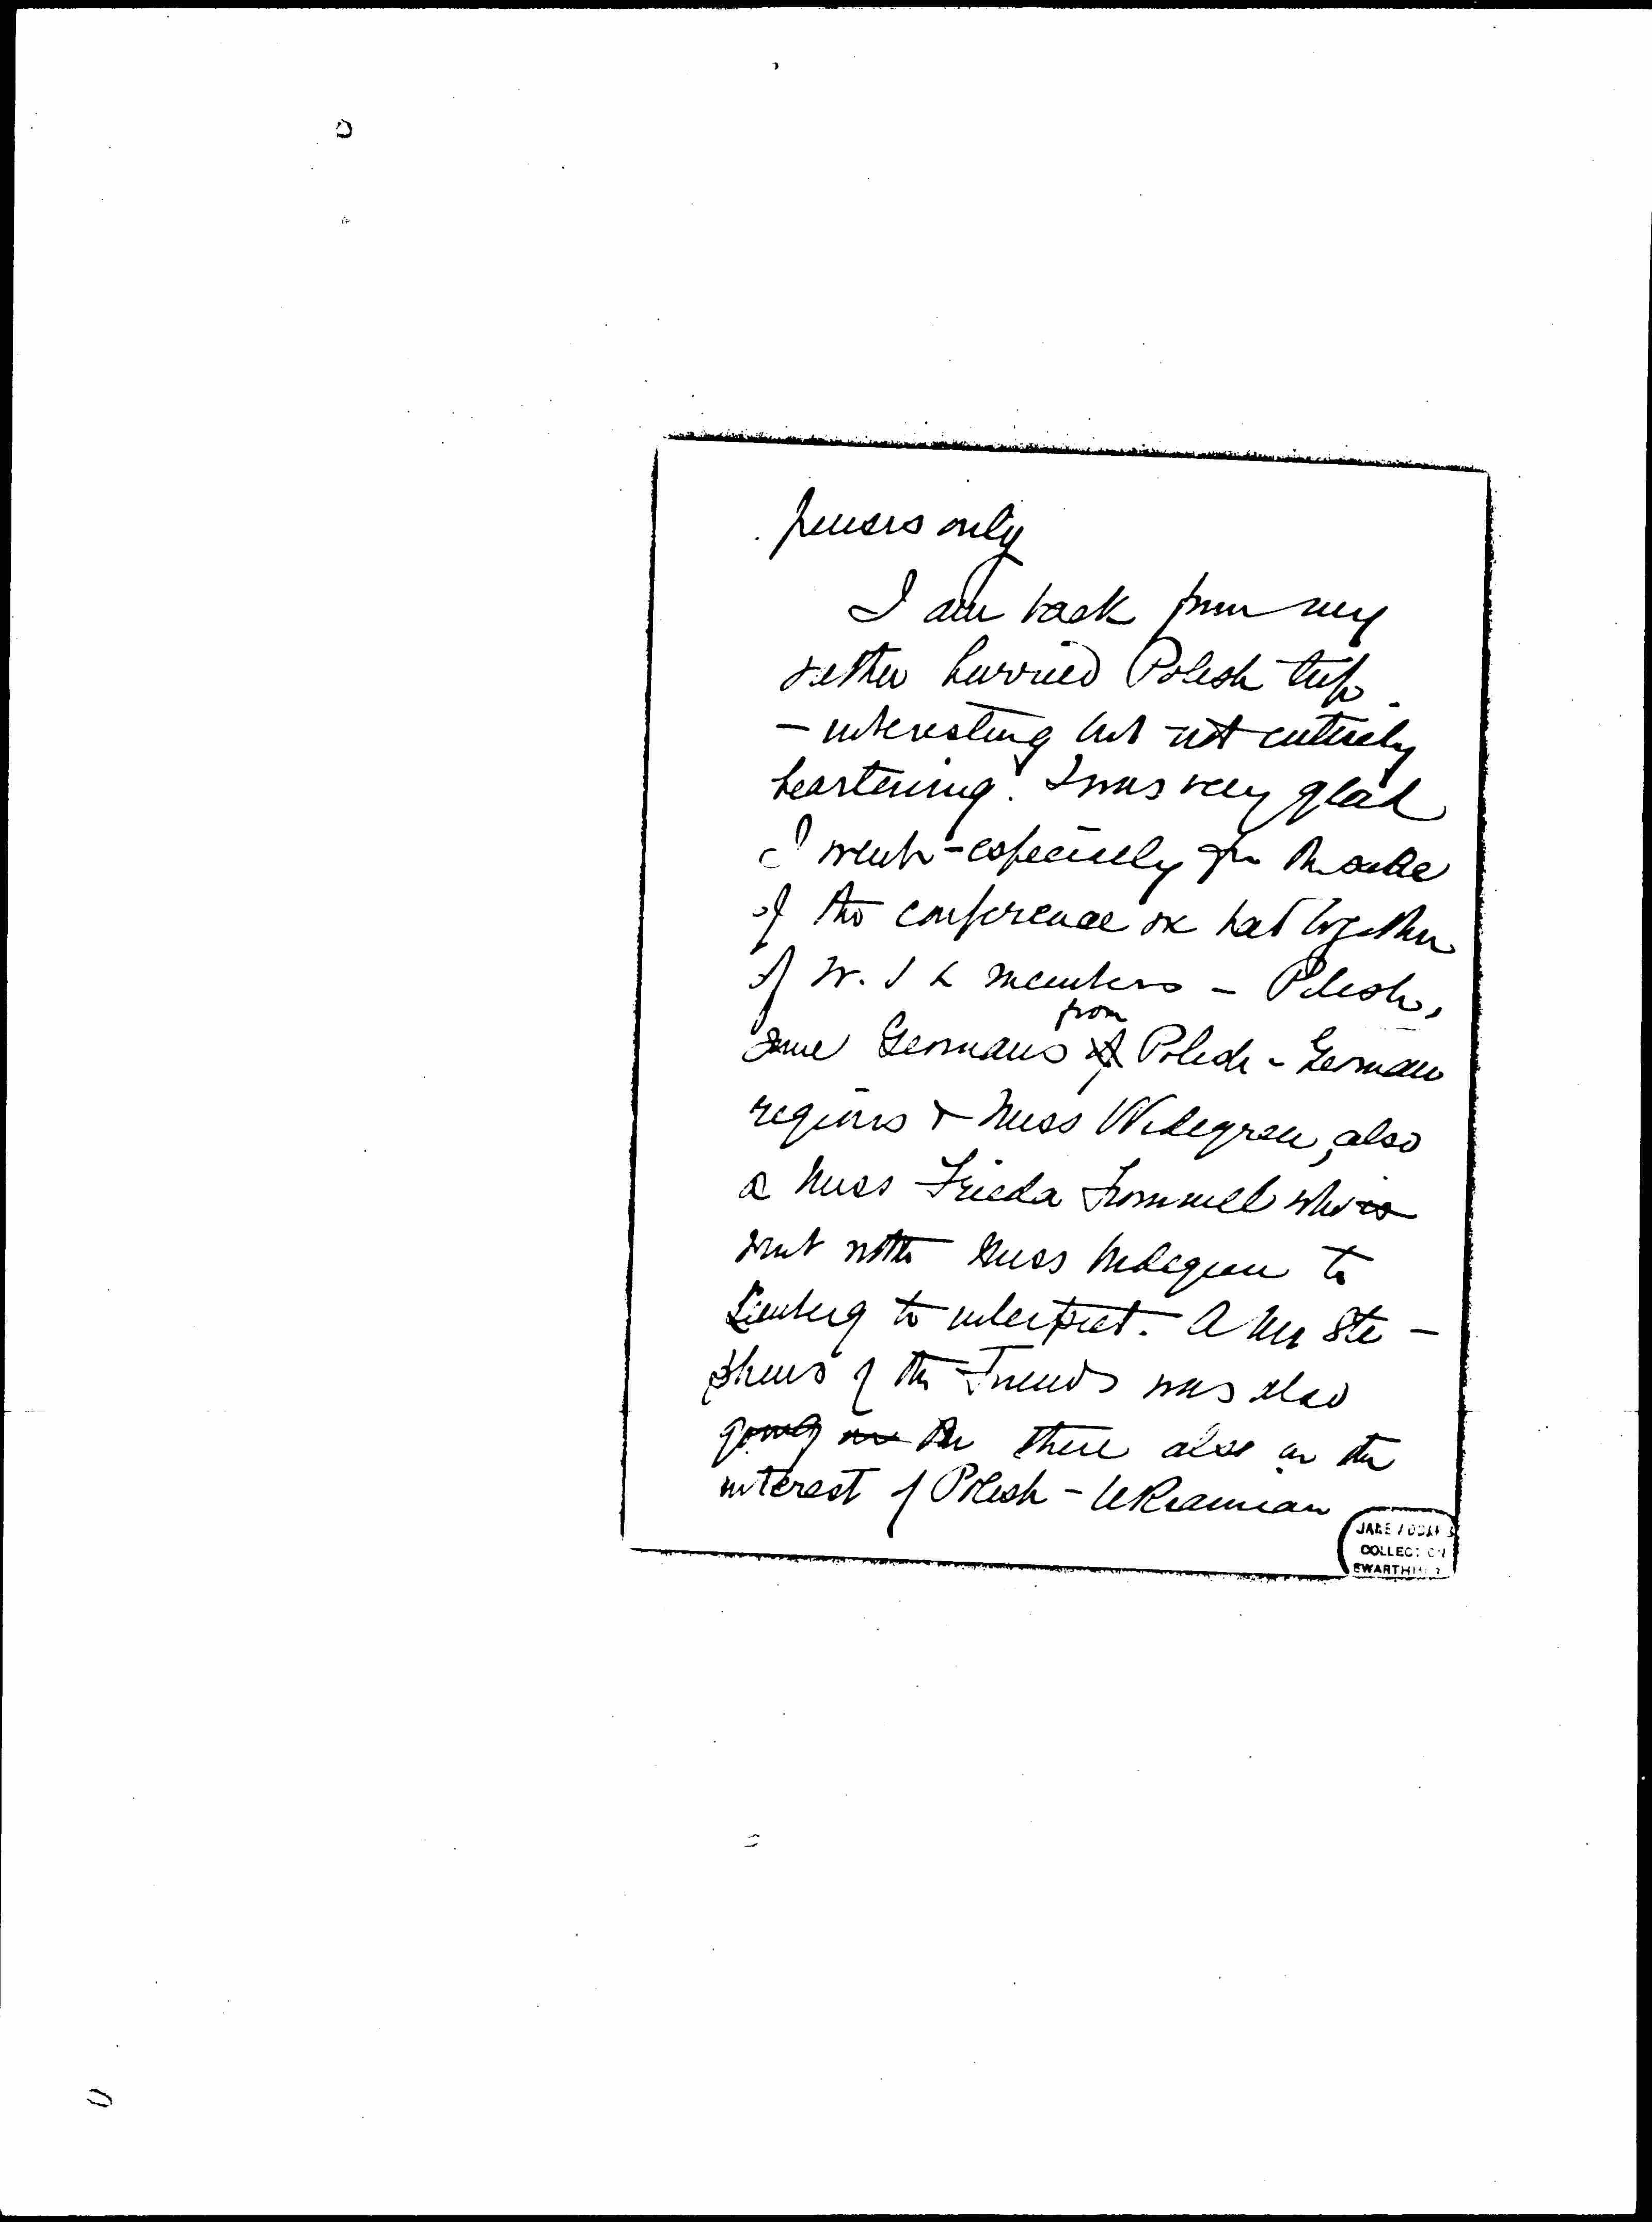 only
I am back from my
rather hurried Polish trip
- interesting but not entirely
heartening. I was very glad
I went - especially for the sake
of the conference we had together
of W. I L members - Polish,
from
some Germans of Polish - German
regions & Miss Widegren, also
a Miss Frieda Frommel who is
went with Miss Widegren to
Lemberg to interpret. A Mr Ste -
phens of the Friends was also
going there also in the
interest of Polish - Ukrainian
JANE ADDAMS
COLLECTION
SWARTHMORE